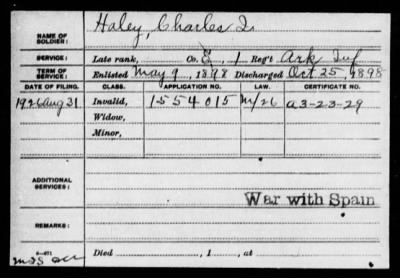 NAME OF SOLDIER: Haley, Charles I.
SERVICE: Late rank, Co. E, 1 Reg't Ark Inf
TERM OF SERVICE: Enlisted May 9, 1898 Discharged Oct 25, 1898
DATE OF FILING. CLASS. APPLICATION NO. LAW. CERTIFICATE NO.
1926 Aug 31 Invalid, 1554015 m/26 a3-23-29
Widow,
Minor,
ADDITIONAL SERVICES:
War with Spain
REMARKS:
Died , 1 , at